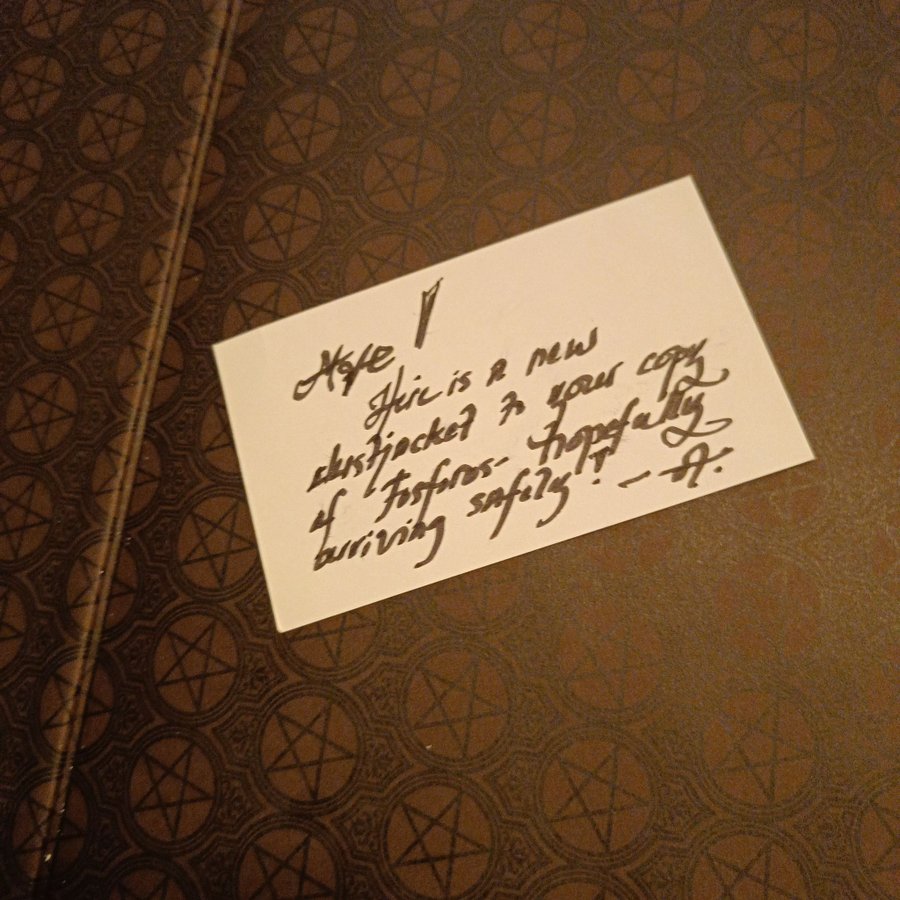 Hope!
Here is a new
dustjacket to your copy
of Fosforos - hopefully
arriving safely! - A.